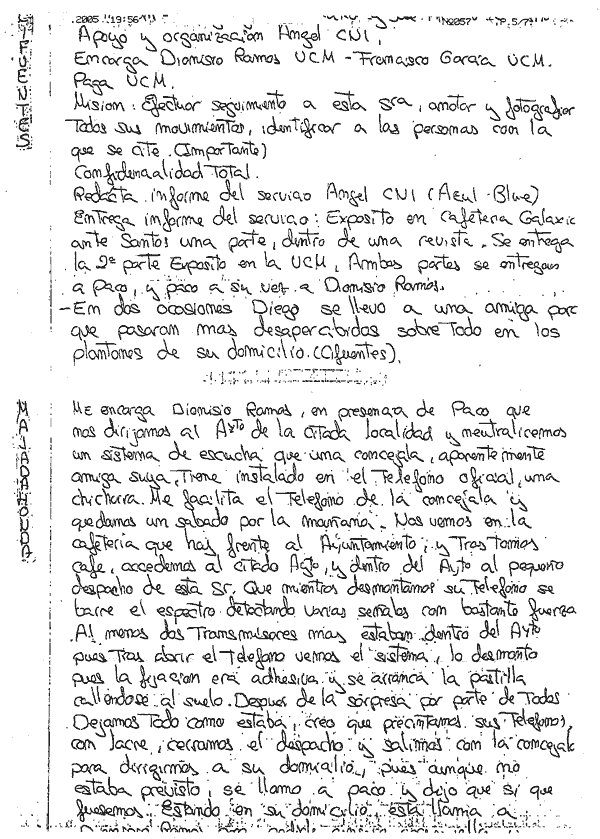 2005 19:56
Nº0057 P.5/7
CIFUENTES
Apoyo y organización Angel CNI,
Encarga Dionisio Ramos UCM - Francisco García UCM.
Paga UCM.
Mision: Efectuar seguimiento a esta sra, anotar y fotografiar
Todos sus movimientos, identificar a las personas con la
que se cite. (Importante)
Confidencialidad Total.
Redacta informe del servicio Angel CNI (Azul-Blue)
Entrega informe del servicio: Exposito en cafeteria Galaxic
ante Santos una parte, dentro de una revista. Se entrega
la 2ª parte Exposito en la UCM, Ambas partes se entregan
a Paco, y paco a su vez a Dionisio Ramos.
- En dos ocasiones Diego se llevo a una amiga para
que pasaran mas desapercibidos sobre Todo en los
plantones de su domicilio. (Cifuentes).
MAJADAHONDA
Me encarga Dionisio Ramos, en presencia de Paco que
nos dirijamos al Ayto de la citada localidad y neutralicemos
un sistema de escucha que una concejala, aparentemente
amiga suya, Tiene instalado en el Telefono oficial, una
chicharra. Me facilita el Telefono de la concejala y
quedamos un sabado por la mañana. Nos vemos en la
cafeteria que hay frente al Ayuntamiento, y Tras tomar
cafe, accedemos al citado Ayto, y dentro del Ayto al pequeño
despacho de esta Sr. Que mientras desmontamos su Telefono se
barre el espectro detectando varias señales con bastante fuerza
Al menos dos Transmisores mas estaban dentro del Ayto
pues Tras abrir el Telefono vemos el sistema, lo desmonto
pues la fijacion era adhesiva y se arranca la pastilla
callendose al suelo. Despues de la sorpresa por parte de Todos
Dejamos Todo como estaba, creo que precintamos sus Telefonos,
con lacre, cerramos el despacho y salimos con la concejala
para dirigirnos a su domicilio, pues aunque no
estaba previsto, se llamo a paco y dijo que si que
fuesemos. Estando en su domicilio, esta llama a